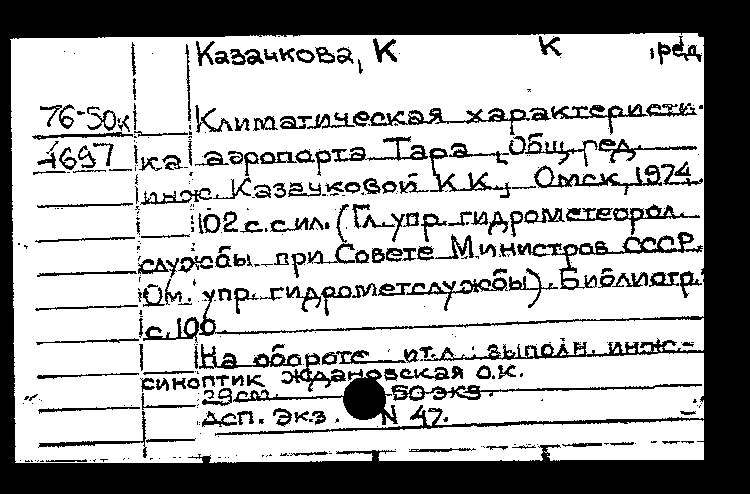 Казачкова, К К ,ред.
76-50к Климатическая характеристи-
4697 ка аэропорта Тара [Общ. ред.
инж. Казачковой К К.], Омск, 1974
102 с. с ил. (Гл. упр. гидрометеорол.
службы при Совете Министров СССР.
Ом. упр. гидрометслужбы). Библиогр.:
с. 100.
На обороте т.л.: выполн. инж.-
синоптик Ждановская О.К.
29 cm. 50 экз.
ДСП. Экз. N 47.